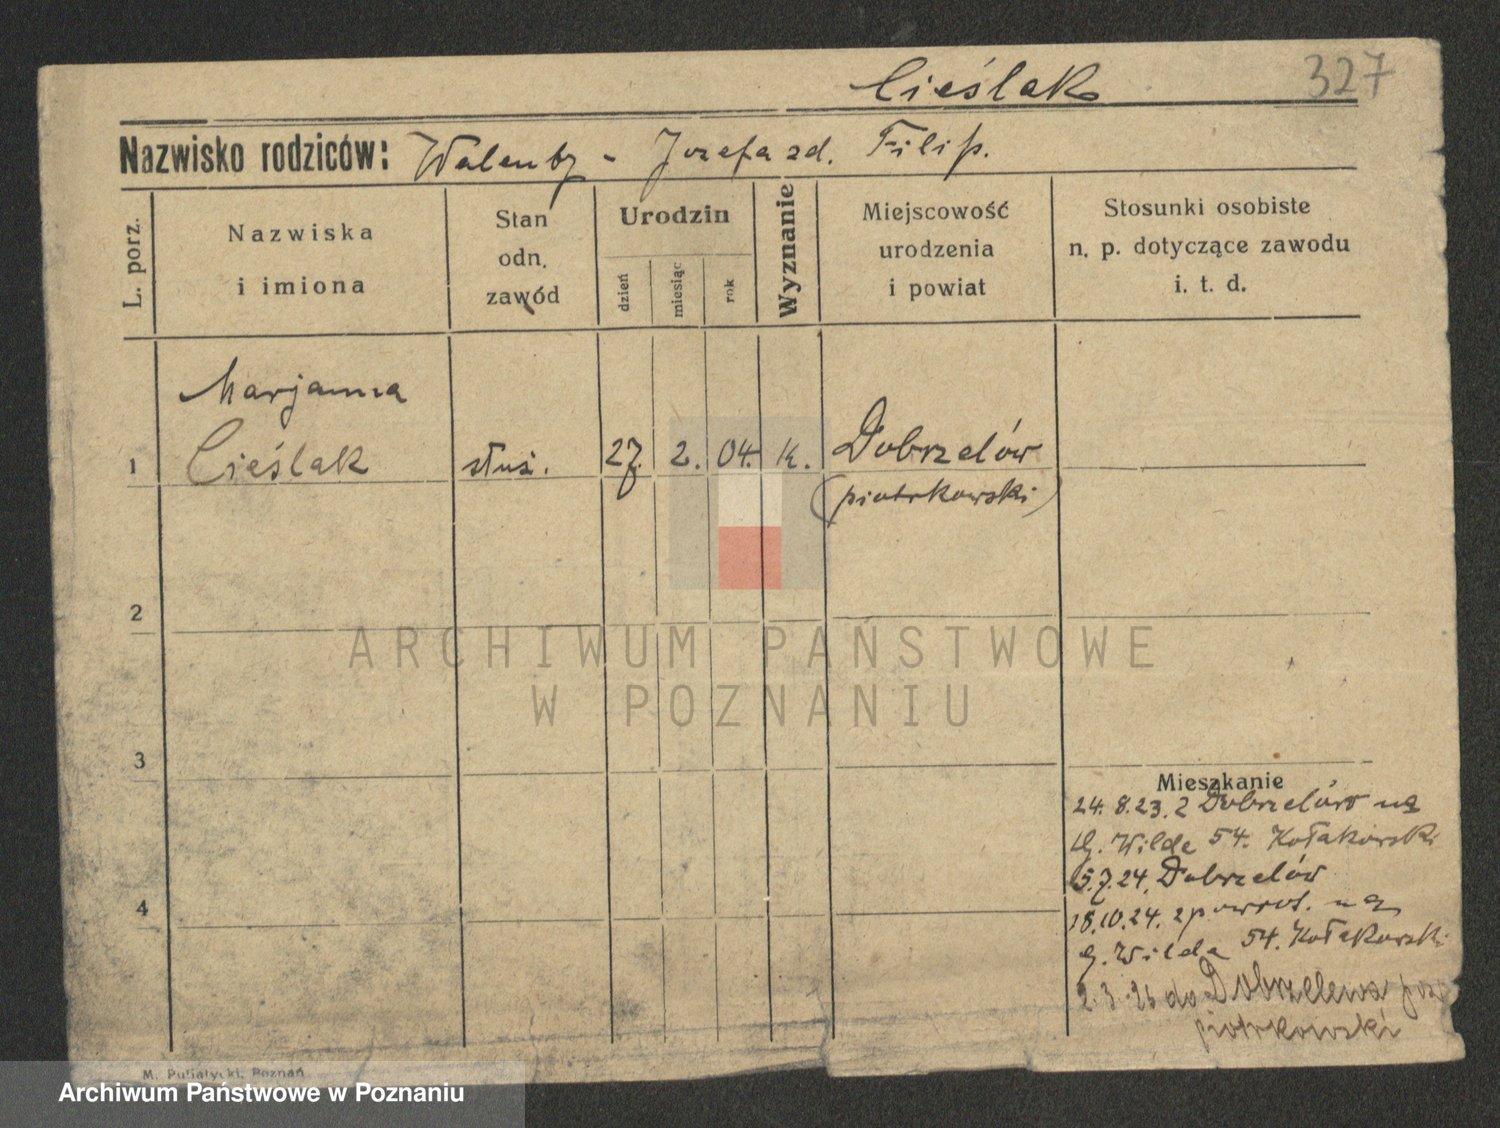 Cieślak
327
Nazwisko rodziców: Walenty - Józefa zd. Filip.
L. porz.
Nazwiska
i imiona
Stan
odn.
zawód
Urodzin
dzień
miesiąc
rok
Wyznanie
Miejscowość
urodzenia
i powiat
Stosunki osobiste
n. p. dotyczące zawodu
i. t. d.
Marjanna
1 Cieślak służ. 27. 2. 04. k. Dobrzelów
(piotrkowski)
2
3
4
Mieszkanie
24. 8. 23. z Dobrzelów na
G. Wilde 54. Kołakowski
5.7.24. Dobrzelów
18.10.24. z powrot. na
G. Wilda 54. Kołakowski
2.3.26 do Dobrzelewa
piotrkowski
M. Putiatycki, Poznań
ARCHIWUM PAŃSTWOWE
W POZNANIU
Archiwum Państwowe w Poznaniu